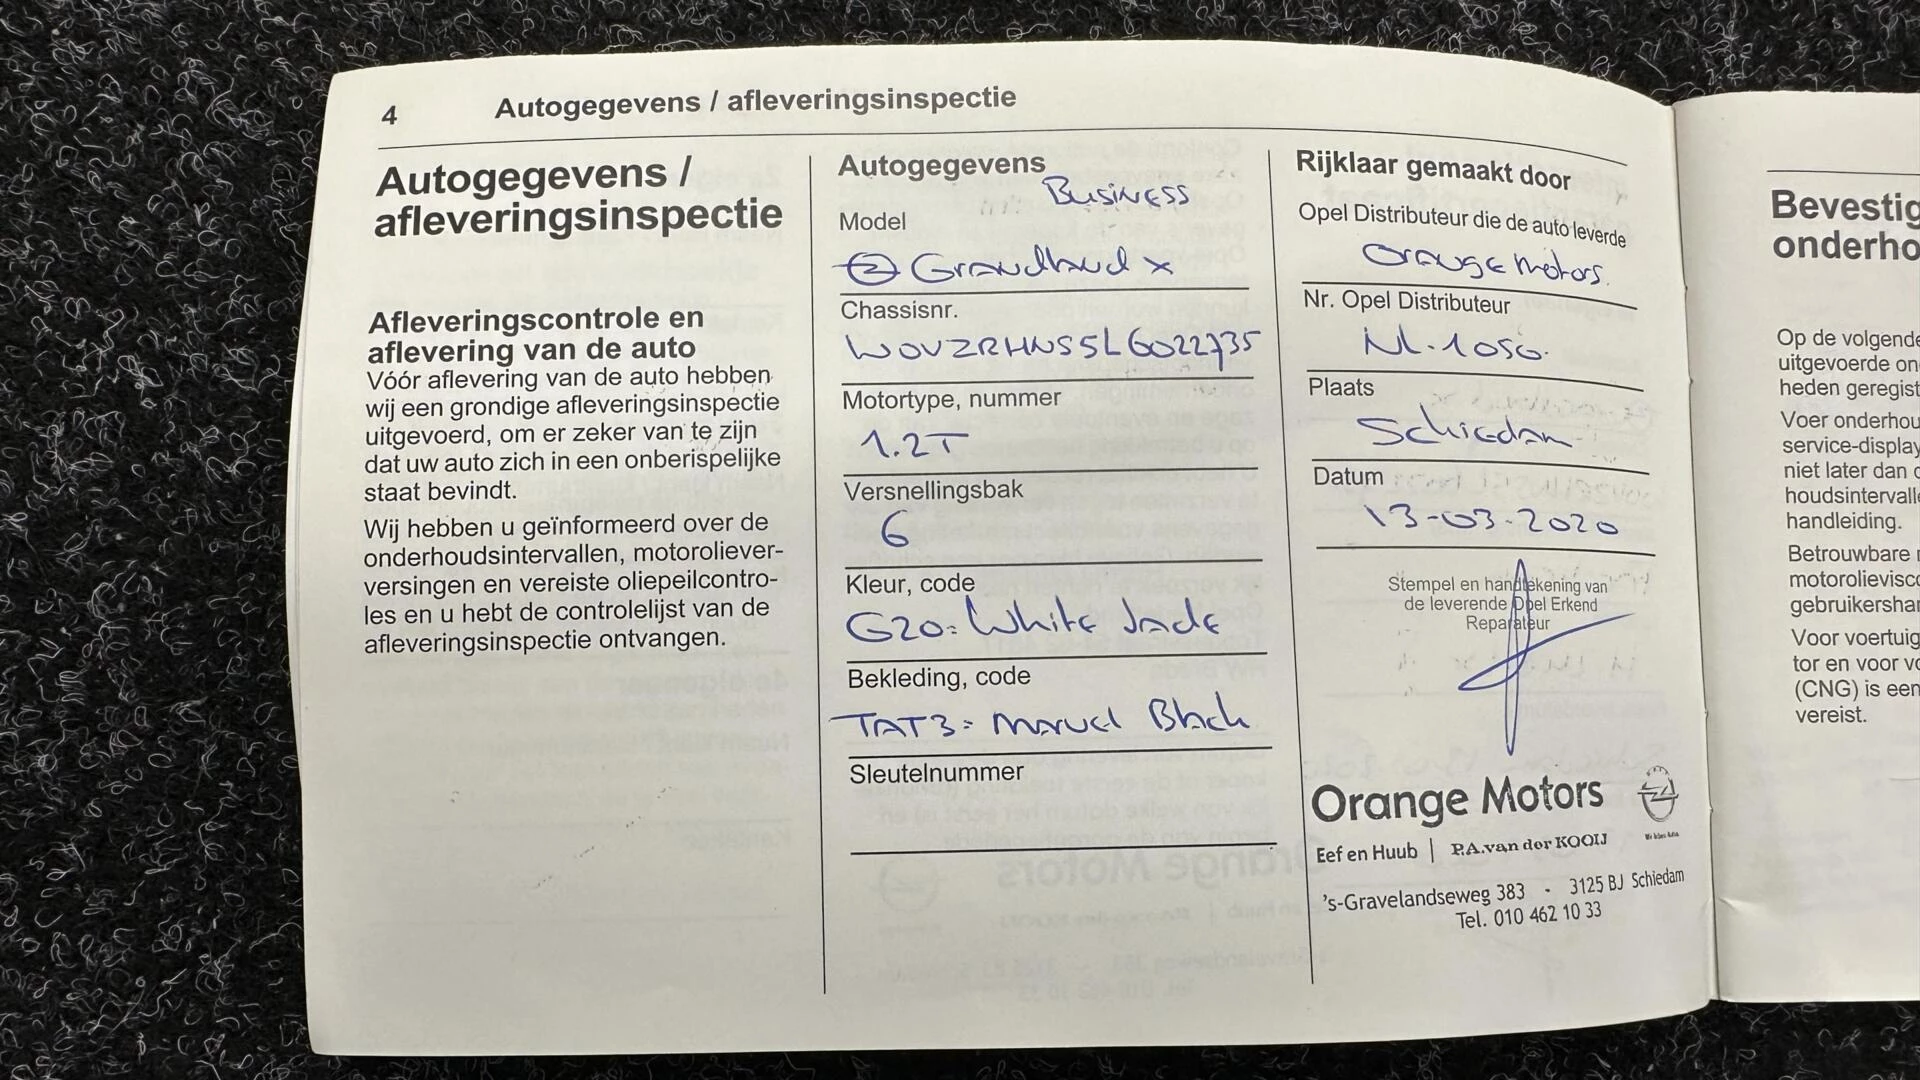 4 Autogegevens / afleveringsinspectie
Autogegevens /
afleveringsinspectie
Afleveringscontrole en
aflevering van de auto
Vóór aflevering van de auto hebben
wij een grondige afleveringsinspectie
uitgevoerd, om er zeker van te zijn
dat uw auto zich in een onberispelijke
staat bevindt.
Wij hebben u geïnformeerd over de
onderhoudsintervallen, motoroliever-
versingen en vereiste oliepeilcontro-
les en u hebt de controlelijst van de
afleveringsinspectie ontvangen.
Autogegevens
Business
Model
Grandland x
Chassisnr.
W0VZRHNS5L6022735
Motortype, nummer
1.2T
Versnellingsbak
6
Kleur, code
G20: White Jade
Bekleding, code
TAT3: Marvel Black
Sleutelnummer
Rijklaar gemaakt door
Opel Distributeur die de auto leverde
Orange Motors.
Nr. Opel Distributeur
NL.1050.
Plaats
Schiedam
Datum
13-03-2020
Stempel en handtekening van
de leverende Opel Erkend
Reparateur
Orange Motors
Eef en Huub | P.A.van der KOOIJ
's-Gravelandseweg 383 - 3125 BJ Schiedam
Tel. 010 462 10 33
Bevestig
onderho
Op de volgende
uitgevoerde on
heden geregist
Voer onderhou
service-display
niet later dan
houdsintervalle
handleiding.
Betrouwbare
motorolievisco
gebruikershan
Voor voertuig
tor en voor vo
(CNG) is een
vereist.